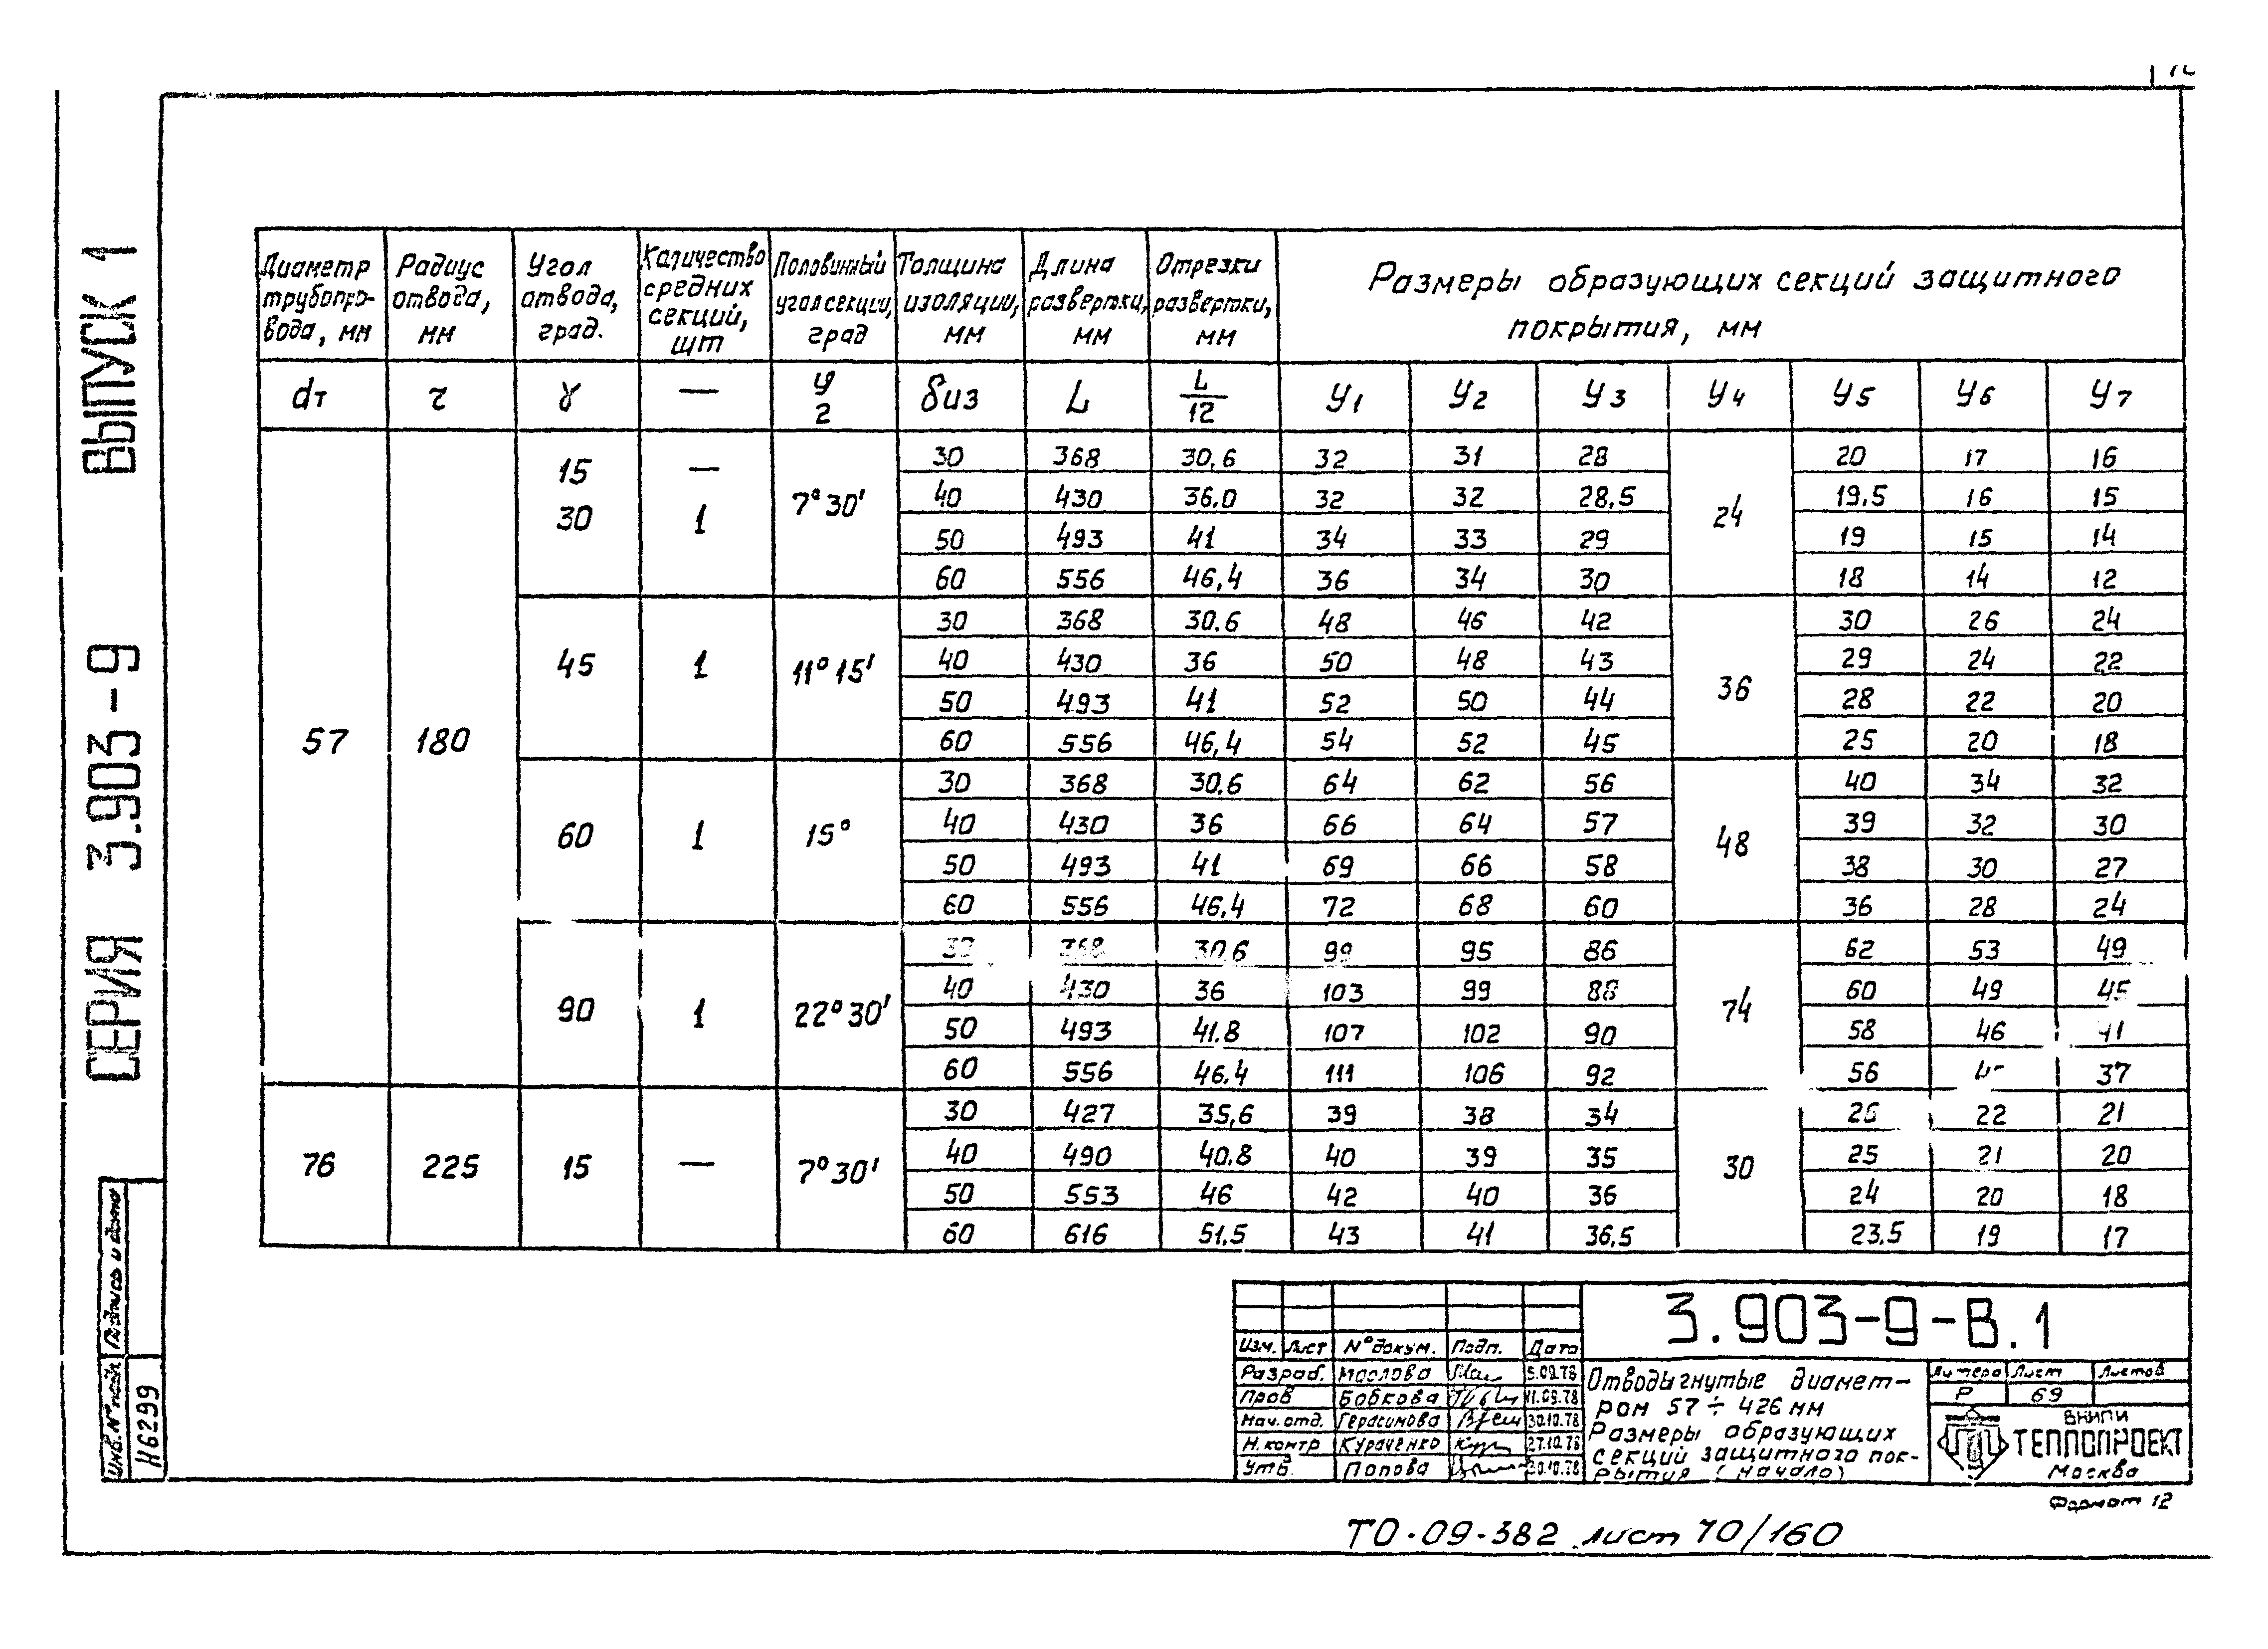 СЕРИЯ 3.903-9 ВЫПУСК 1
Диаметр трубопровода, мм | Радиус отвода, мм | Угол отвода, град. | Количество средних секций, шт | Половинный угол секции, град | Толщина изоляции, мм | Длина развертки, мм | Отрезки развертки, мм | Размеры образующих секций защитного покрытия, мм
dт | r | γ | — | φ/2 | δиз | L | L/12 | У1 | У2 | У3 | У4 | У5 | У6 | У7
57 | 180 | 15 30 | — 1 | 7°30' | 30 | 368 | 30,6 | 32 | 31 | 28 | 24 | 20 | 17 | 16
40 | 430 | 36,0 | 32 | 32 | 28,5 | 19,5 | 16 | 15
50 | 493 | 41 | 34 | 33 | 29 | 19 | 15 | 14
60 | 556 | 46,4 | 36 | 34 | 30 | 18 | 14 | 12
45 | 1 | 11°15' | 30 | 368 | 30.6 | 48 | 46 | 42 | 36 | 30 | 26 | 24
40 | 430 | 36 | 50 | 48 | 43 | 29 | 24 | 22
50 | 493 | 41 | 52 | 50 | 44 | 28 | 22 | 20
60 | 556 | 46,4 | 54 | 52 | 45 | 25 | 20 | 18
60 | 1 | 15° | 30 | 368 | 30,6 | 64 | 62 | 56 | 48 | 40 | 34 | 32
40 | 430 | 36 | 66 | 64 | 57 | 39 | 32 | 30
50 | 493 | 41 | 69 | 66 | 58 | 38 | 30 | 27
60 | 556 | 46,4 | 72 | 68 | 60 | 36 | 28 | 24
90 | 1 | 22°30' | 30 | 368 | 30,6 | 99 | 95 | 86 | 74 | 62 | 53 | 49
40 | 430 | 36 | 103 | 99 | 88 | 60 | 49 | 45
50 | 493 | 41.8 | 107 | 102 | 90 | 58 | 46 | 41
60 | 556 | 46.4 | 111 | 106 | 92 | 56 | 37
76 | 225 | 15 | — | 7°30' | 30 | 427 | 35,6 | 39 | 38 | 34 | 30 | 26 | 22 | 21
40 | 490 | 40.8 | 40 | 39 | 35 | 25 | 21 | 20
50 | 553 | 46 | 42 | 40 | 36 | 24 | 20 | 18
60 | 616 | 51.5 | 43 | 41 | 36,5 | 23,5 | 19 | 17
3.903-9-В.1
Изм. Лист N°докум. Подп. Дата
Разраб. Маслова 5.09.78
Пров Бобкова 11.09.78
Нач.отд. Герасимова 30.10.78
Н.контр Кураченко 27.10.78
Утв. Попова 30.10.78
Отводы гнутые диамет-
ром 57÷426 мм
Размеры образующих
секций защитного пок-
рытия (начало)
Литера Лист Листов
Р 69
ВНИПИ
ТЕПЛОПРОЕКТ
Москва
Формат 12
ТО-09-382 лист 70/160
Инв.N°подл. Подпись и дата
Н6299